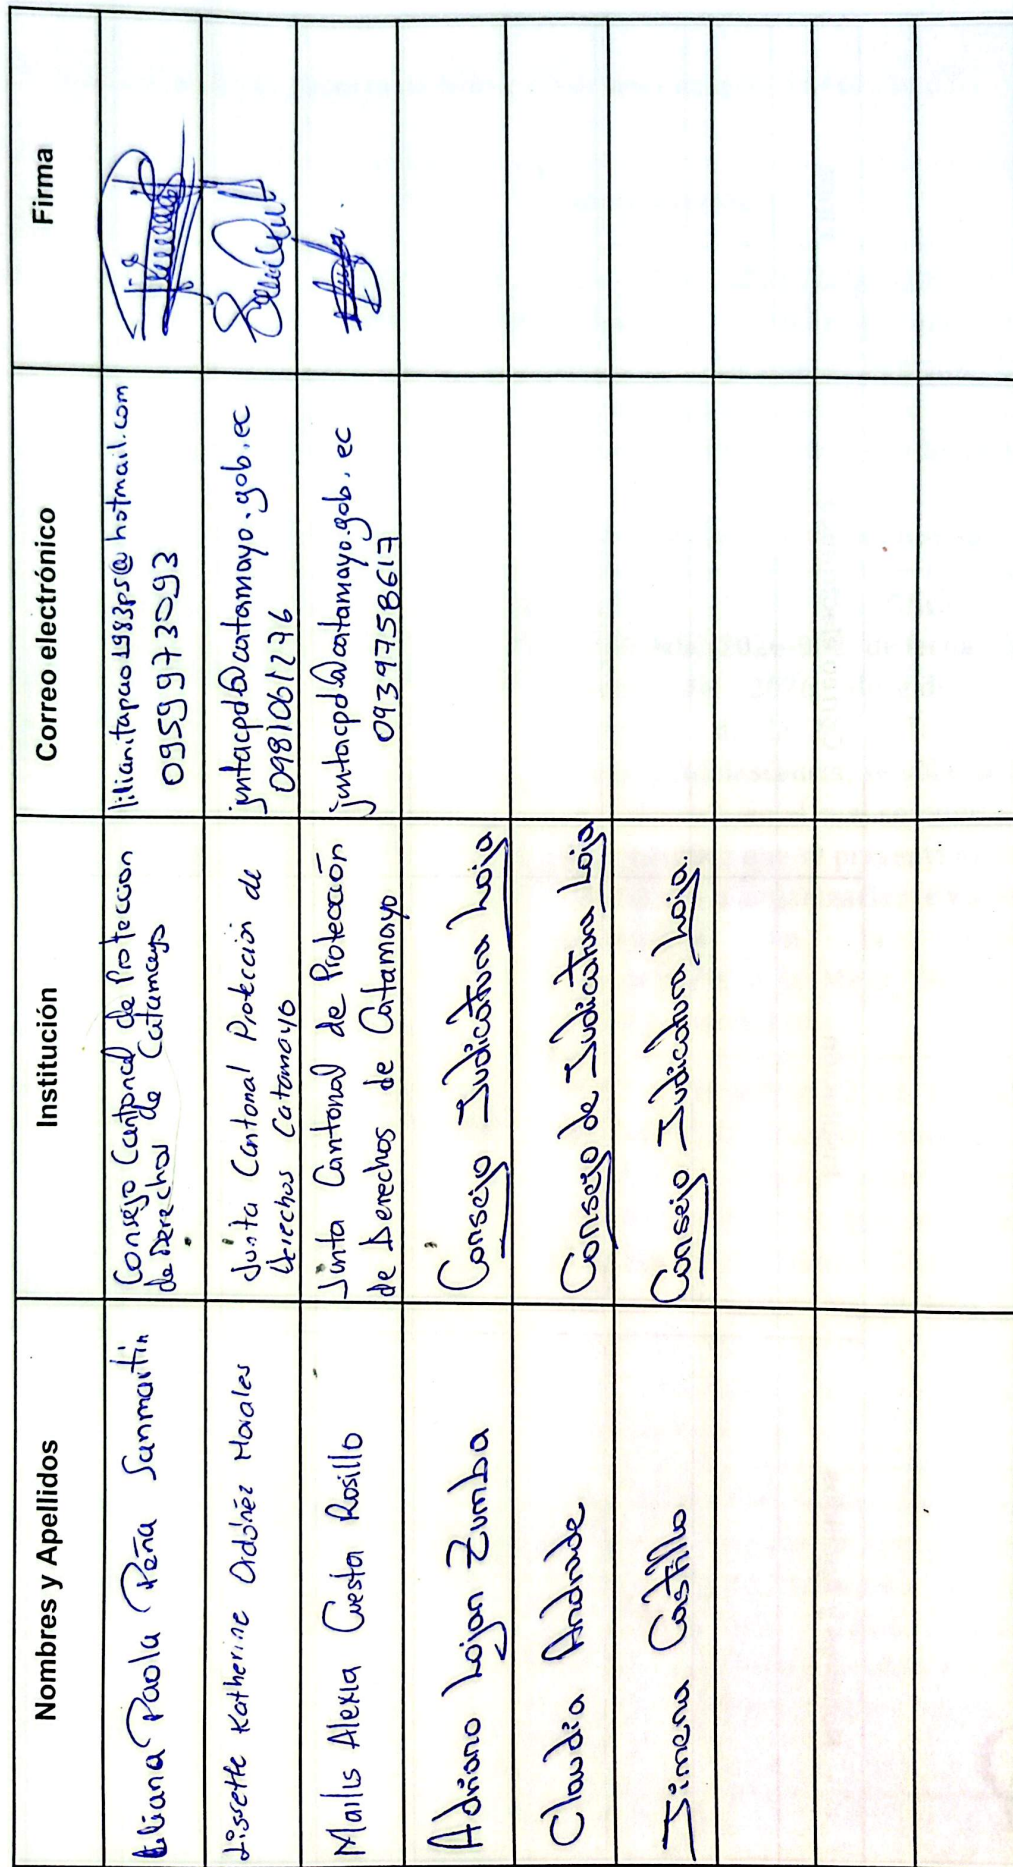 Nombres y Apellidos Institución Correo electrónico Firma
Liliana Paola Peña Sanmartín
Consejo Cantonal de Proteccion
de Derechos de Catamayo
lilianitapao1983ps@hotmail.com
0959973093
Lissette Katherine Ordóñez Morales
Junta Cantonal Protección de
Derechos Catamayo
juntacpd@catamayo.gob.ec
0981061276
Mailis Alexia Cuesta Rosillo
Junta Cantonal de Protección
de Derechos de Catamayo
juntacpd@catamayo.gob.ec
0939758617
Adriano Lojan Zumba
Consejo Judicatura Loja
Claudia Andrade
Consejo de Judicatura Loja
Jimena Castillo
Consejo Judicatura Loja